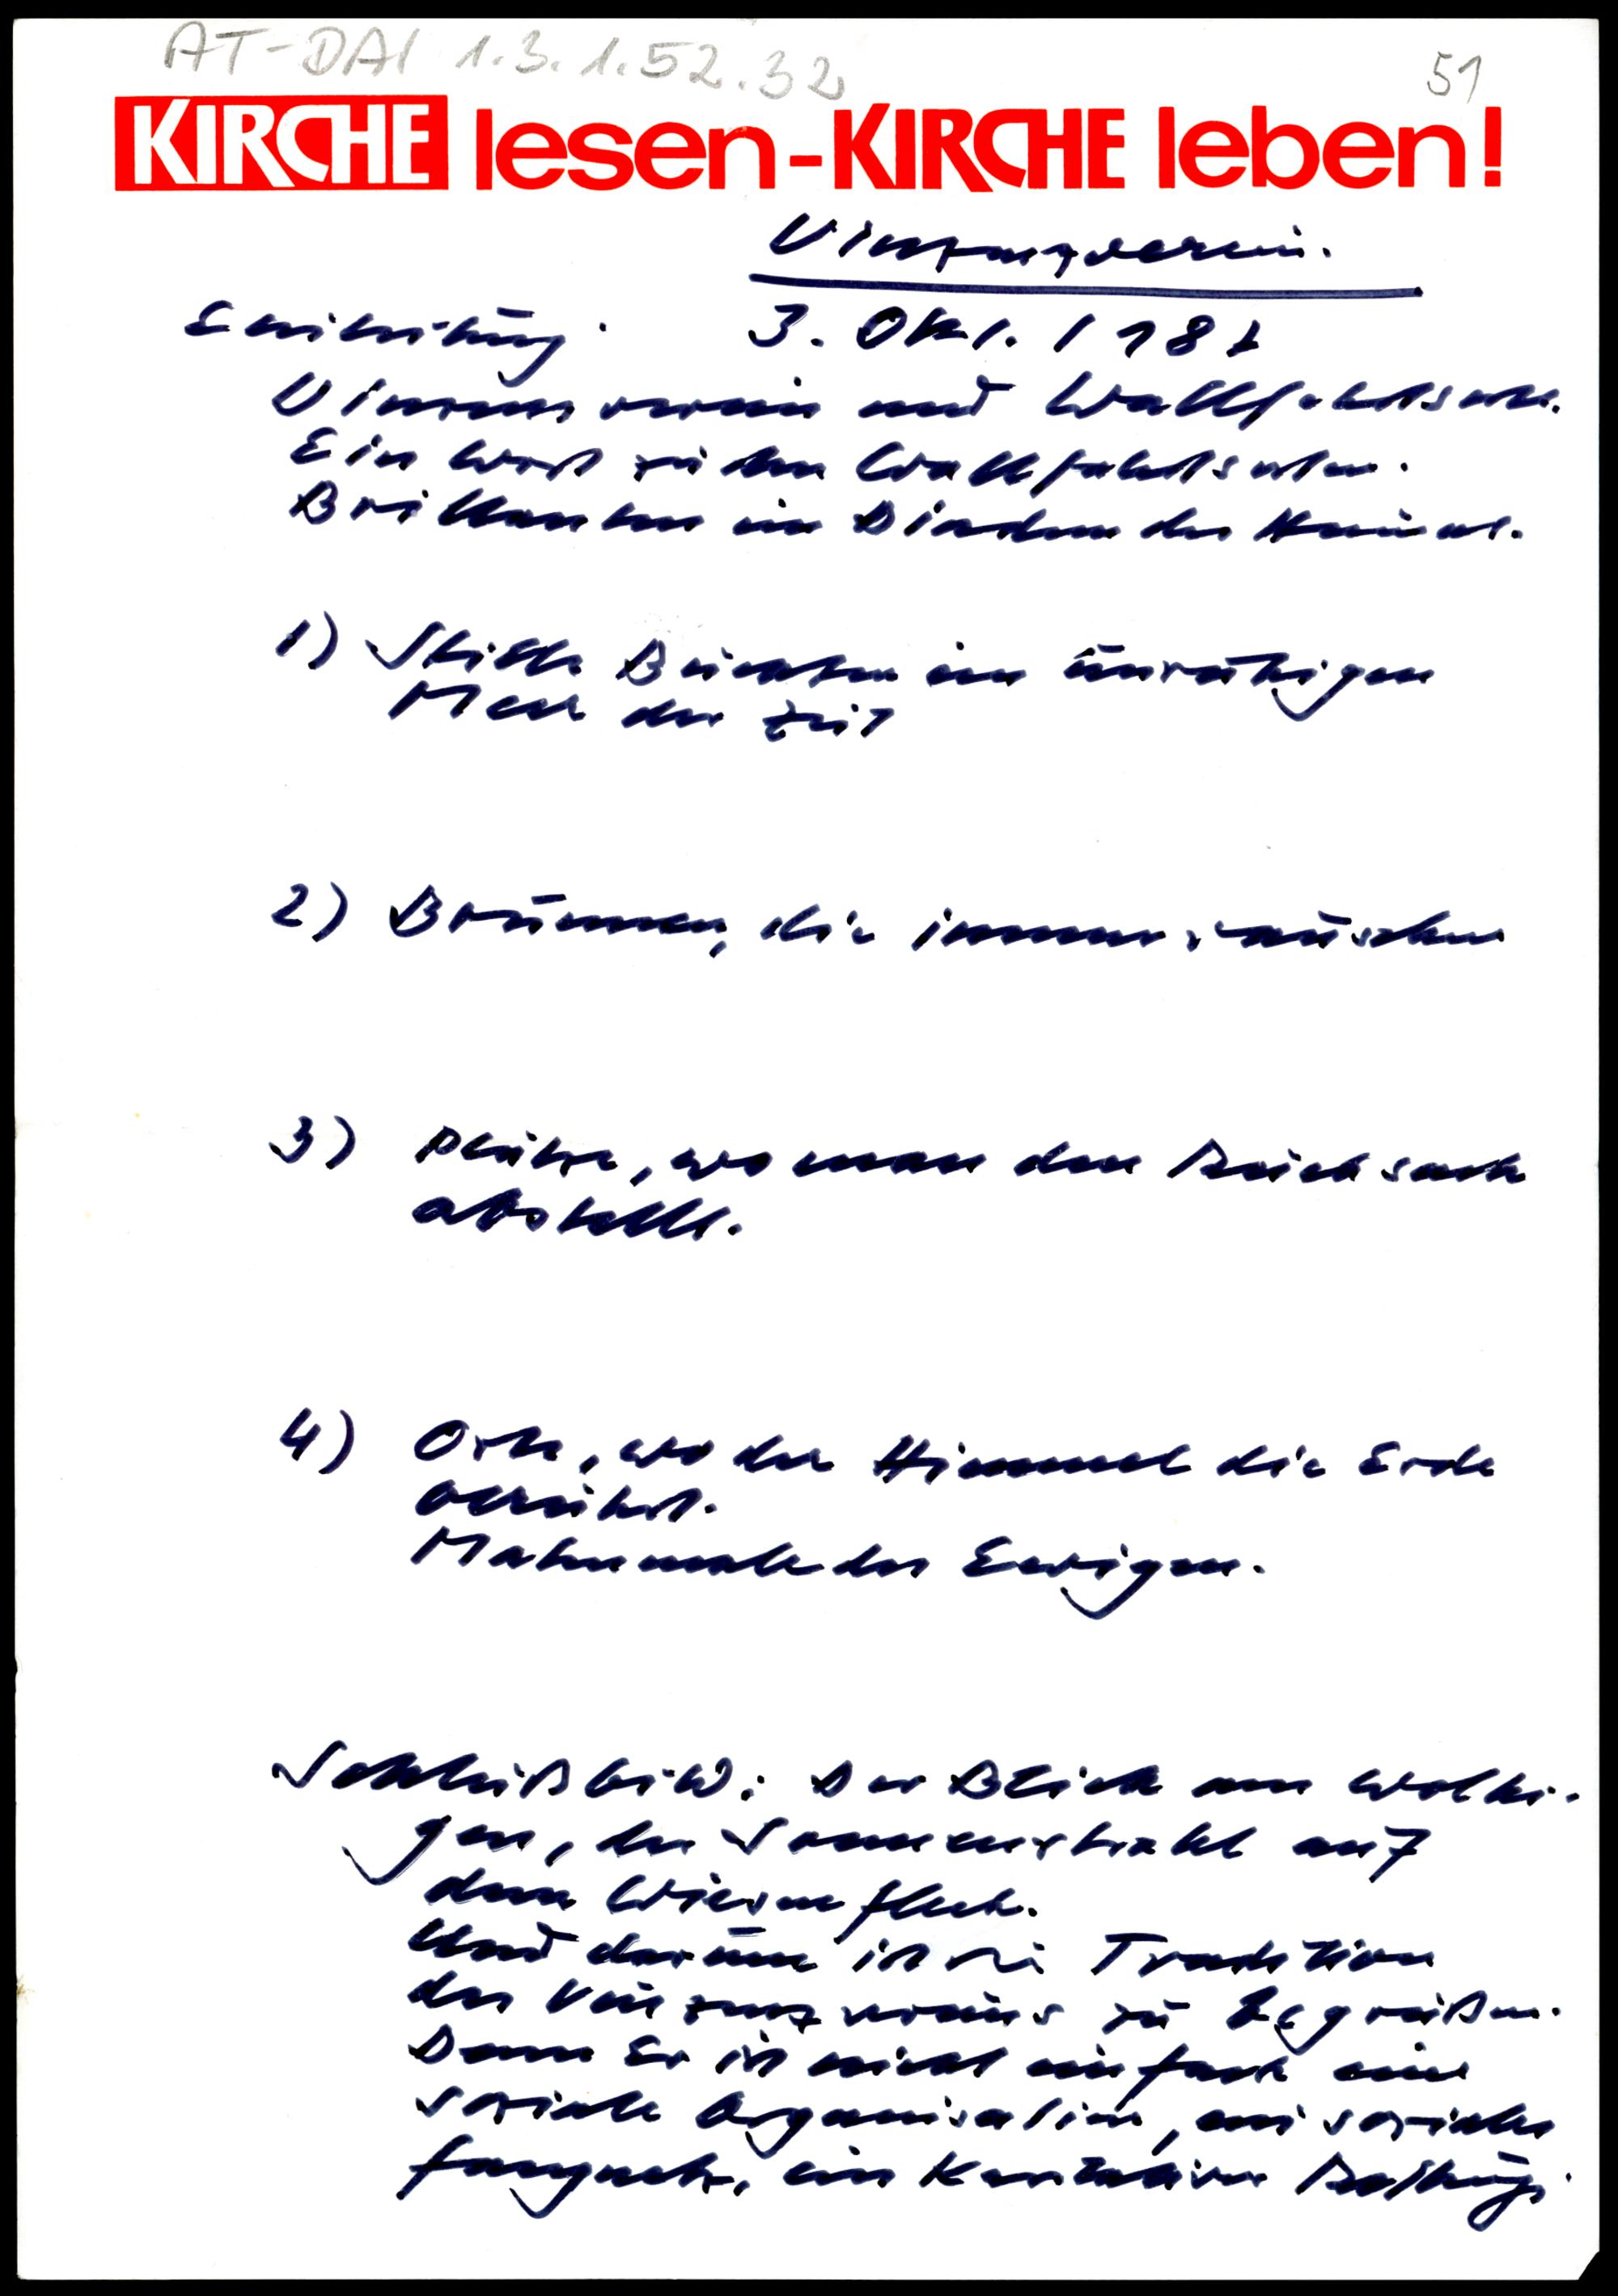 AT-DAI 1.3.1.52.32
51
KIRCHE lesen-KIRCHE leben!
Vinzenzverein.
Einleitung. 3. Okt. 1981
Vinzenzverein und Wallfahrtsorte.
Ein Wort zu den Wallfahrtsorten.
Brillanten im Diadem der Heimat.
1) Stille Buchten im unruhigen
Meer der Zeit
2) Brunnen, die immer rauschen
3) Plätze, wo man den Rucksack
abstellt.
4) Orte, wo der Himmel die Erde
berührt.
Mahnmale des Ewigen.
Schlußbild: Der Blick am wolki-
gen, der Sonnenstrahl auf
dem Wiesenfleck.
Und darum ist die Tradition
des Vinzenzvereins zu begrüßen.
Denn Er ist nicht einfach eine
soziale Organisation, ein soziales
Fangnetz, ein Karitativer Rettungs-